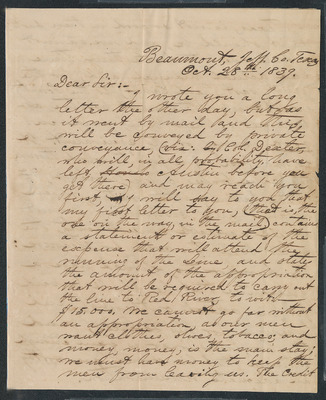 Beaumont, Jeff. Co. Texas
Oct. 28th 1839.
Dear Sir:-
I wrote you a long
letter the other day, but as
it went by mail (and this
will be conveyed by private
conveyance, (via: Col. Dexter,
who will, in all, probability, have
left Austin before you
get there) and may reach you
first, I will say to you that
my first letter to you, (that is, the
one on the way, in the mail) contains
a statement or estimate of the
expense that will attend the
running of the line and states
the amount of the appropriation
that will be required to carry out
the line to Red River, to wit:
$15.000, We cannot go far without
an appropriation as our men
want clothes, shoes, tobacco, and
money, money, is the main stay;
we must have money to keep the
men from leaving us. The credit